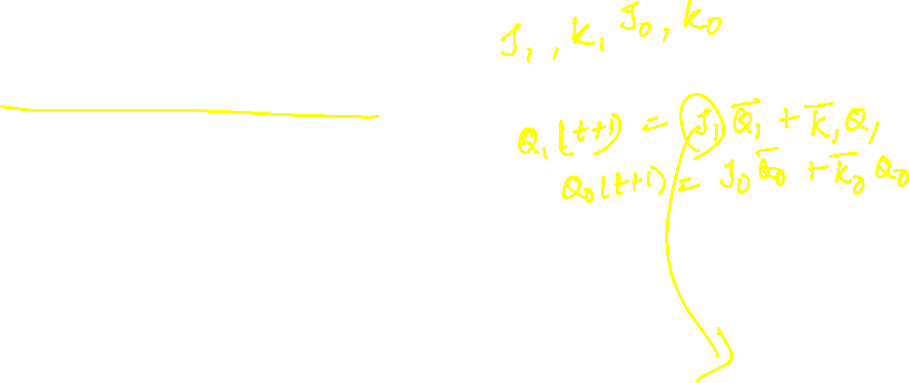 J₁, K₁ J₀, K₀
Q₁(t+1) = J₁Q̅₁ + K̅₁Q₁
Q₀(t+1) = J₀Q̅₀ + K̅₀Q₀